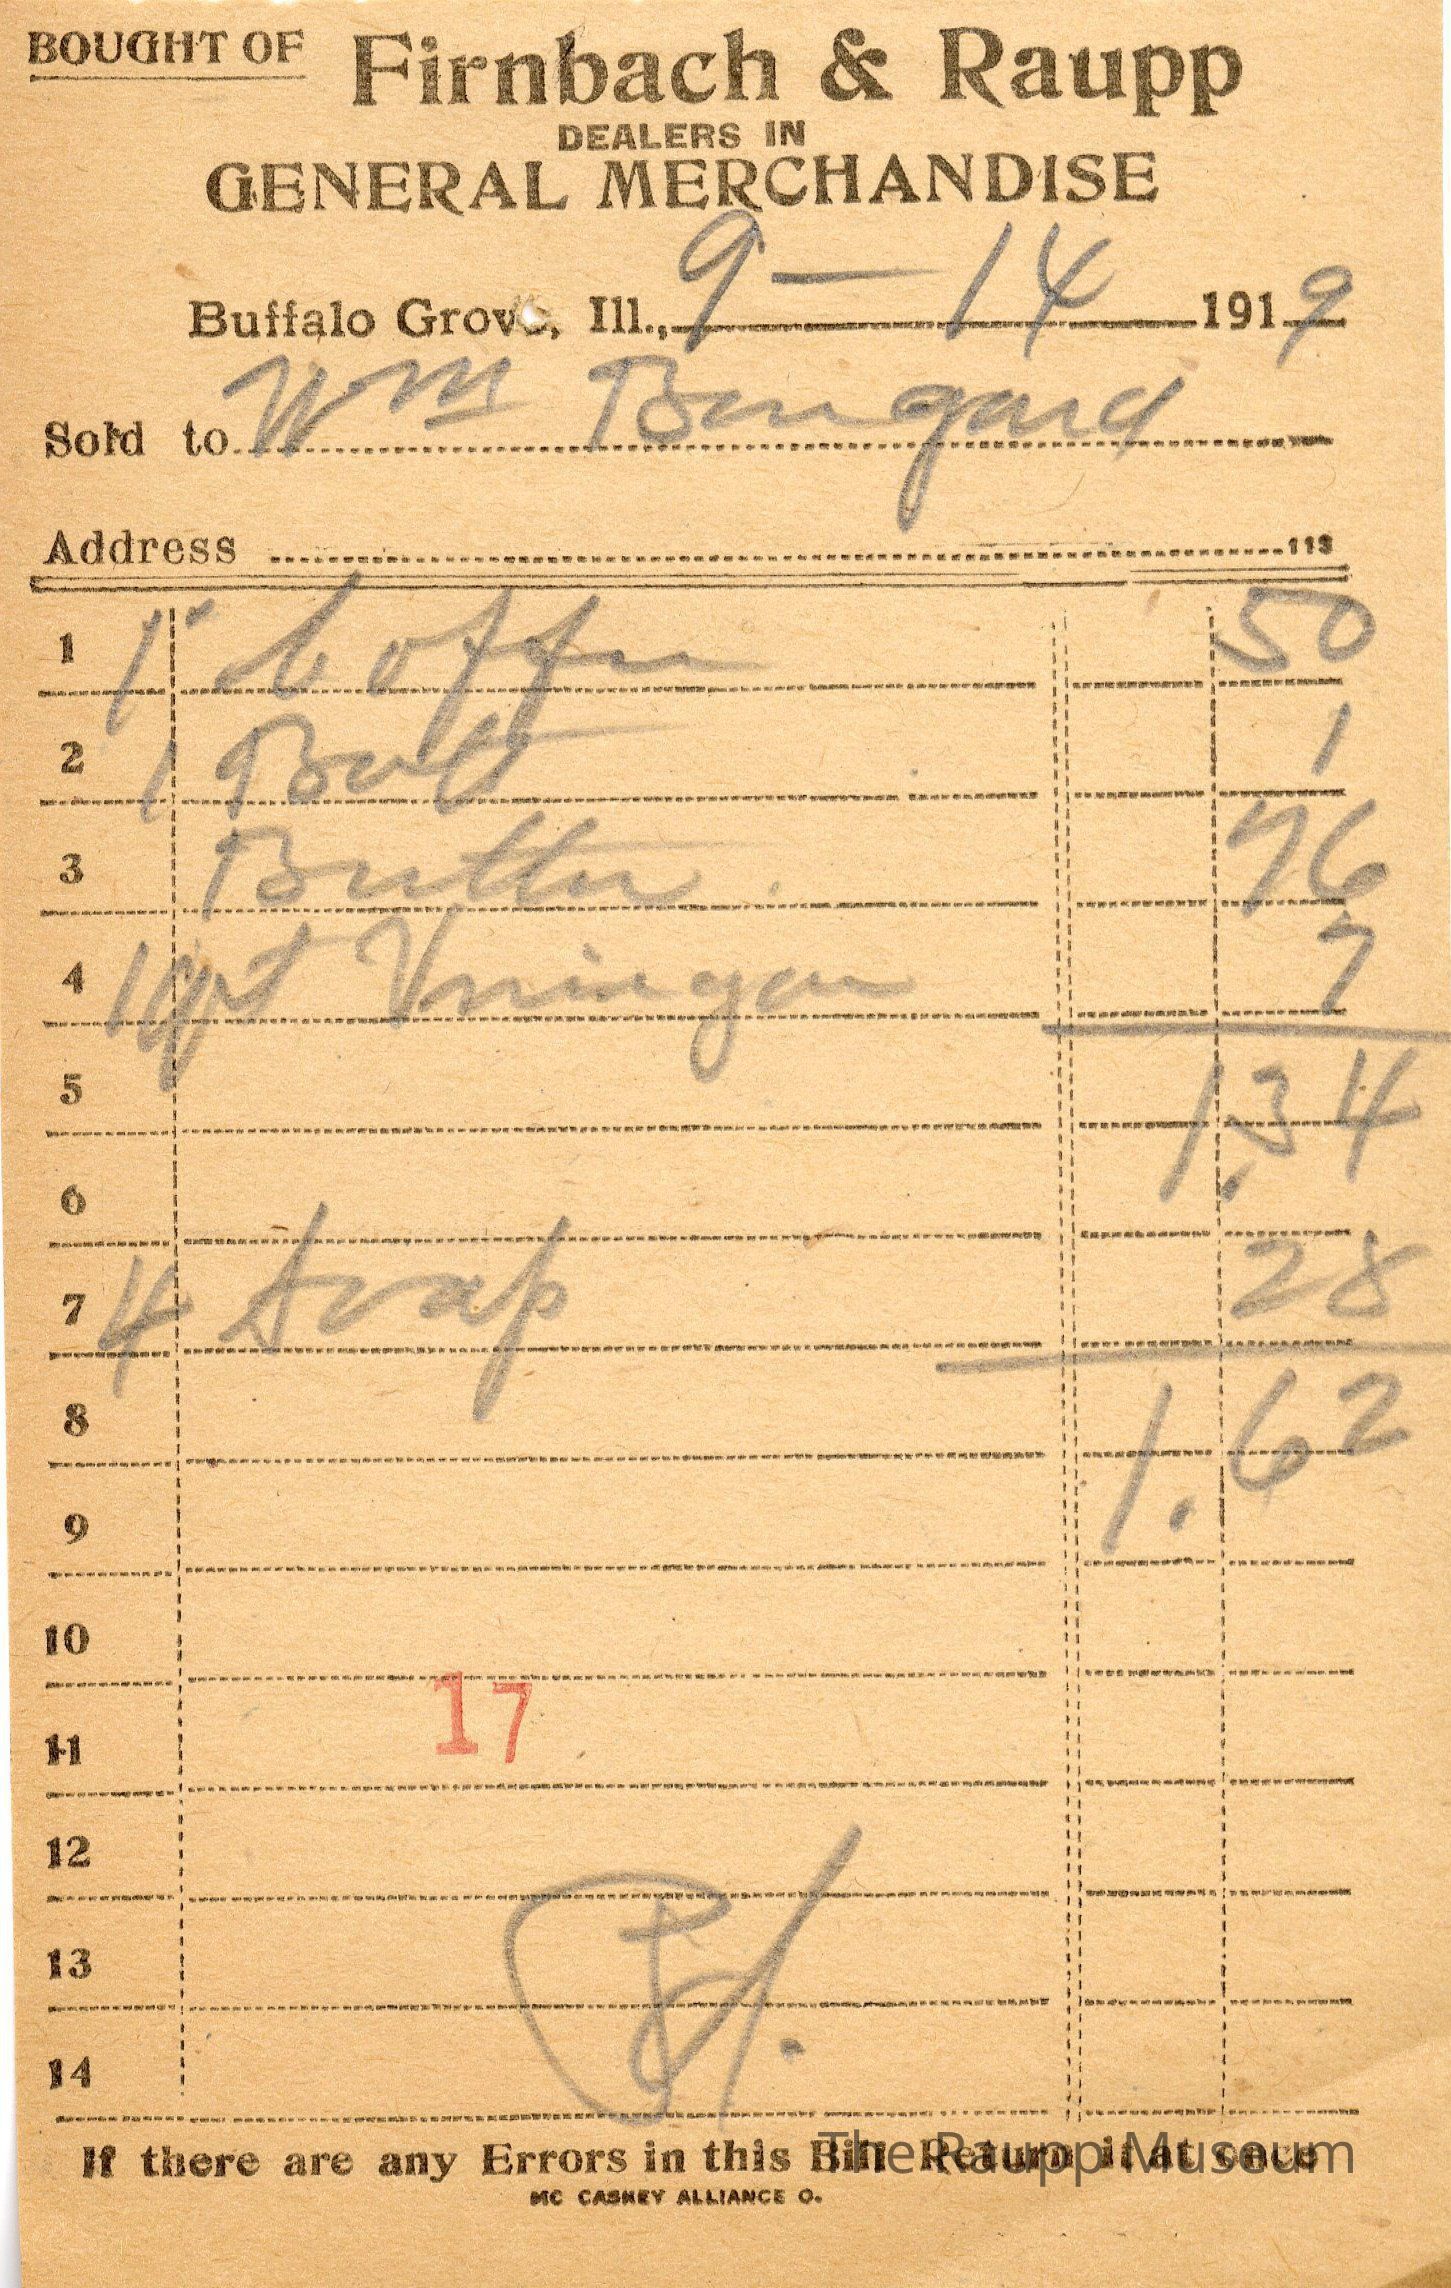 BOUGHT OF Firnbach & Raupp
DEALERS IN
GENERAL MERCHANDISE
Buffalo Grove, Ill., 9 — 14 1919
Sold to Wm Bungard
Address 113
1 1 Coffee 50
2 1 Bolt 1
3 Butter 76
4 1 qrt Vinigar 7
5 1.34
6
7 4 Soap 28
8 1.62
9
10
17
11
12
13
14
If there are any Errors in this Bill Return it at once
The Raupp Museum
MC CASKEY ALLIANCE O.